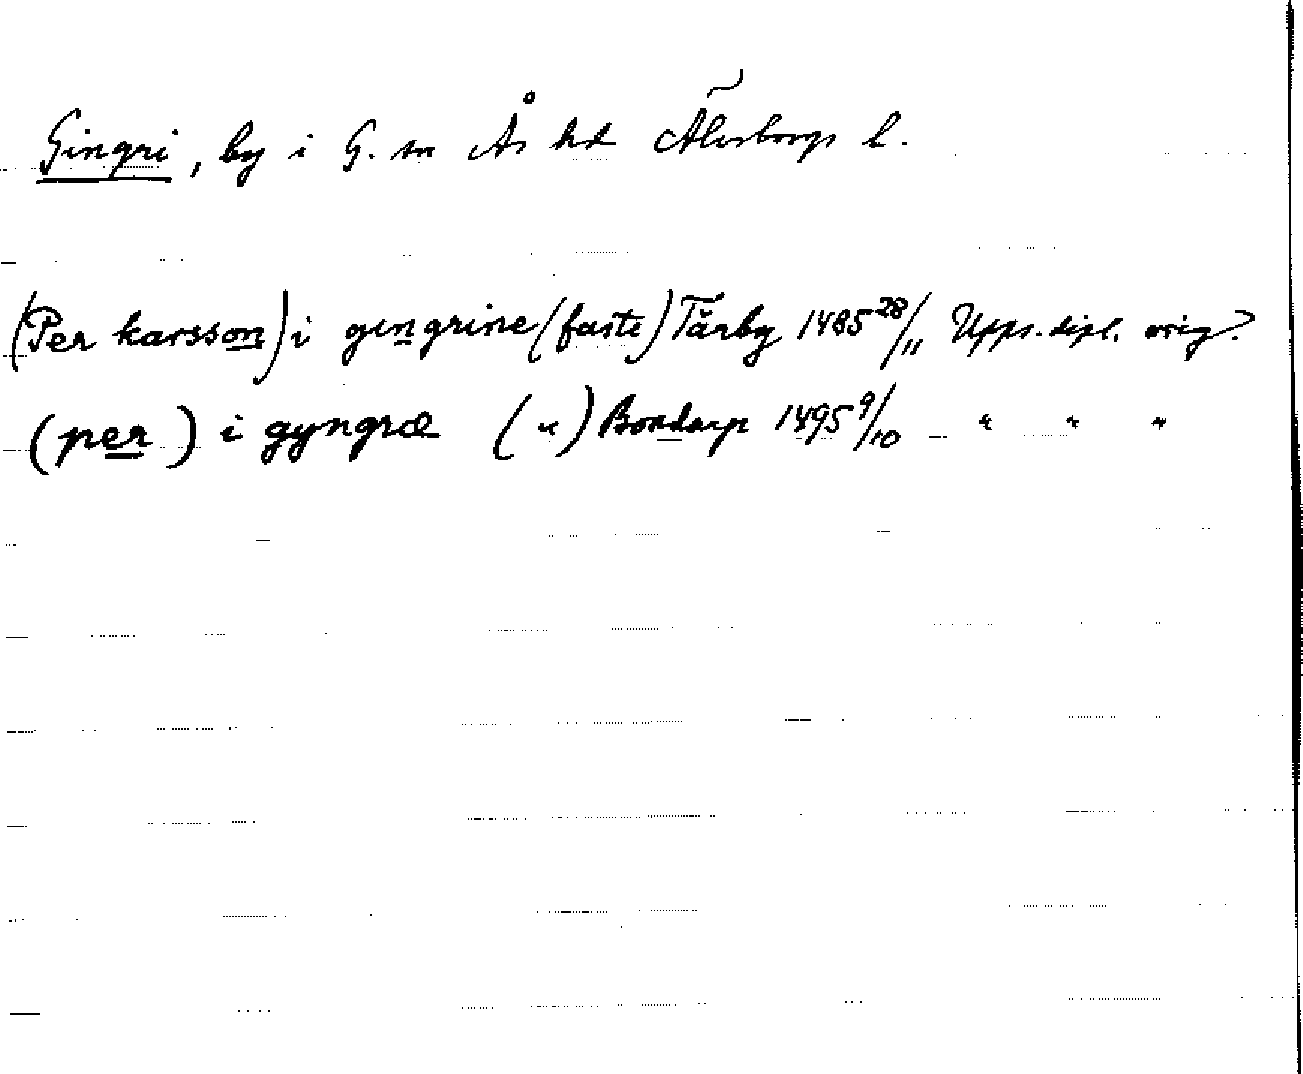 Gingri, by i G. sn Ås hd Älvsborgs l.
(Per karsson) i gingrine (faste) Tärby 1485 28/11 Upps. dipl. orig?
(per) i gyngræ (") Bondarp 1495 9/10 – " " "